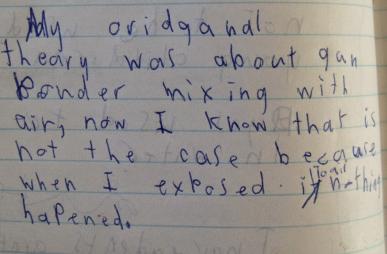 My oridganal
theary was about gun
ponder mixing with
air, now I know that is
not the case because
when I exposed it to air nothing
hapened.